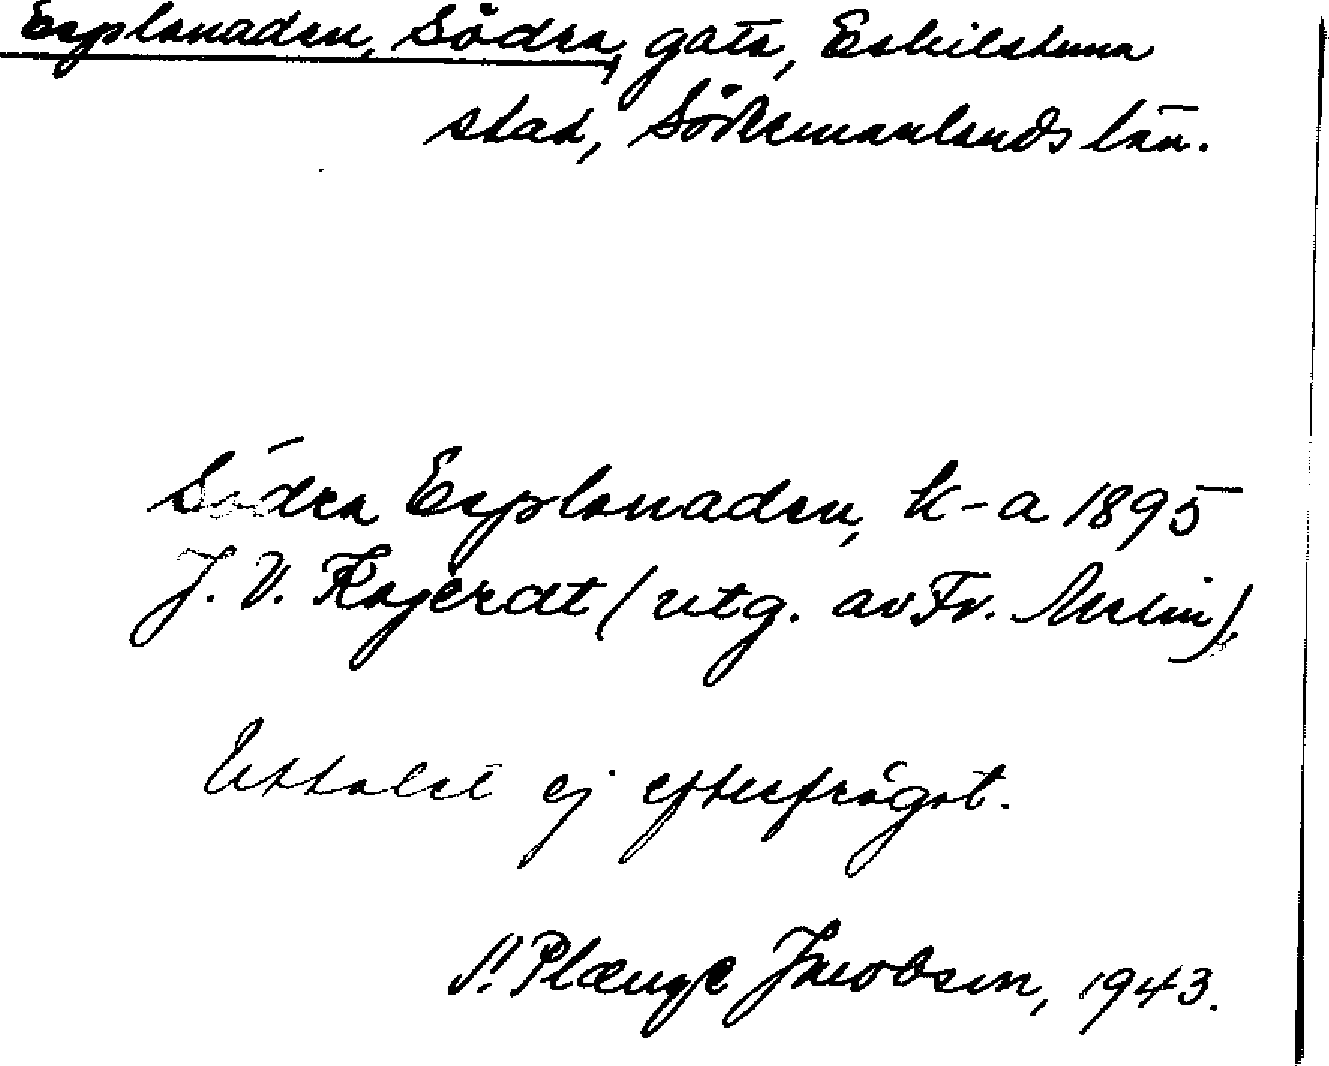 Esplanaden, Södra, gata, Eskilstuna
stad, Södermanlands län.
Södra Esplanaden, k-a 1895
J. V. (utg. av Fr. Malin).
Uttalet ej efterfrågat.
Plænge Jacobsen, 1943.